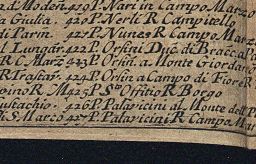 di Moden. 419 P. Nari in Campo Marzo
a Giulia. 420 P. Nerli R Campitello
di Parin. 421 P. Nunes R Campo Marzo
al Lungar. 422 P. Orsini Duc. di Bracc. al Pa
RC. Marz 423 P. Orsin. a Monte Giordano
R Trastav. 424 P. Orsin a Campo di Fiore R
R. M 425 P. Sto. Offitio R Borgo
426 P. Palavicini al Monte
di S. Marco 427 P. Palavicini R Campo Mar